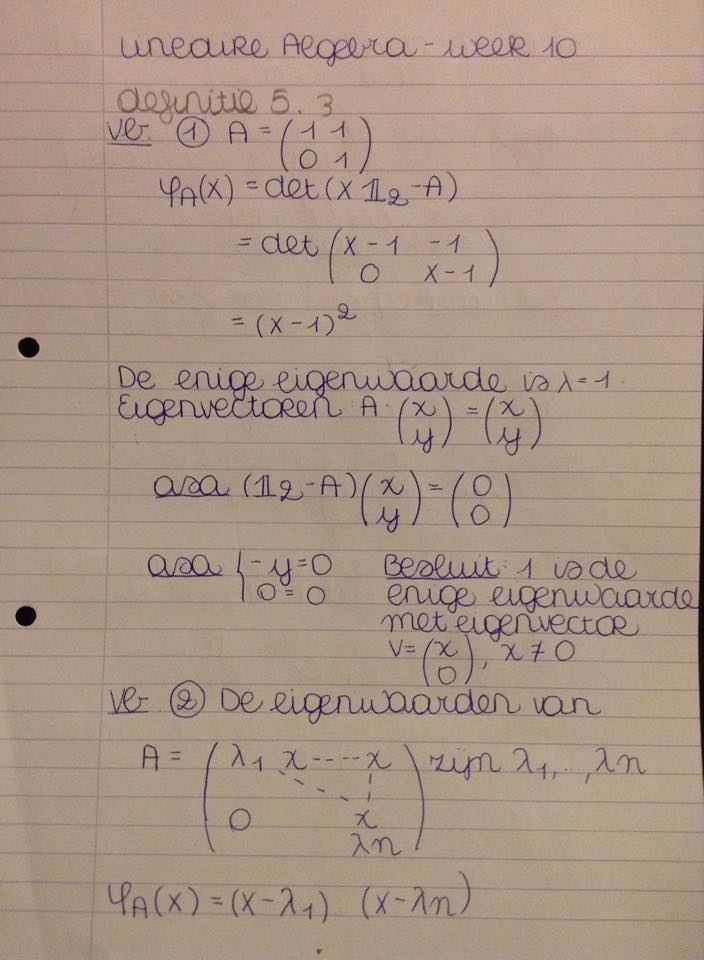 Lineaire Algebra - week 10
definitie 5.3
vb. ① A = (1 1
0 1)
φA(x) = det(x 𝟙2 - A)
= det (x-1 -1
0 x-1)
= (x-1)²
De enige eigenwaarde is λ=1.
Eigenvectoren A·(x
y) = (x
y)
asa (𝟙2-A)(x
y) = (0
0)
asa { -y=0
0=0
Besluit: 1 is de
enige eigenwaarde
met eigenvector
v=(x
0), x≠0
vb. ② De eigenwaarden van
A = (λ1 x----x
0 x
λn) zijn λ1,..,λn
φA(x) = (x-λ1) (x-λn)